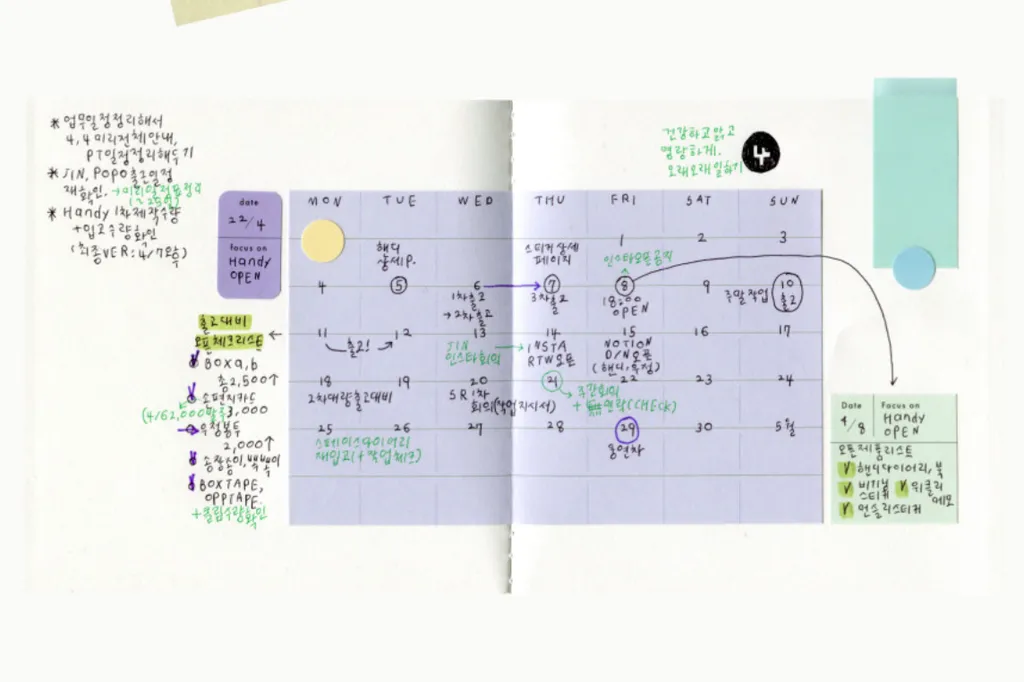 * 업무일정정리해서
4, 4 미리전체안내,
PT일정정리해두기
* JIN, POPO 출근일정
재확인. → 미리일정표정리
(~25일)
* Handy 1차제작수량
+ 입고수량확인
(최종VER: 4/7 오후)
건강하고 맑고
명랑하게.
오래오래일하기
4
date
22/4
focus on
HANDY
OPEN
MON TUE WED THU FRI SAT SUN
1 2 3
핸디
상세P.
스티커상세
페이지
인스타오픈공지
4 5 6 7 8 9 10
1차출고
→ 2차출고
3차출고
18:00
OPEN
주말작업
출고
11 12 13 14 15 16 17
출고!
JIN
인스타회의
INSTA
RTW오픈
NOTION
D/N오픈
(핸디, 우정)
18 19 20 21 22 23 24
2차대량출고대비
SR 1차
회의(작업지시서)
주간회의
+ 연락(CHECK)
25 26 27 28 29 30 5월
스페이스다이어리
재입고(+작업체크)
홍연차
출고대비
오픈체크리스트 ←
BOX a, b
총 2,500↑
손편지카드
3,000
우정봉투
2,000↑
송장종이,
BOXTAPE,
OPPTAPE
Date
4/8
Focus on
HANDY
OPEN
오픈제품리스트
핸디다이어리, 북
비기닝
스티커
위클리
메모
먼슬리스티커